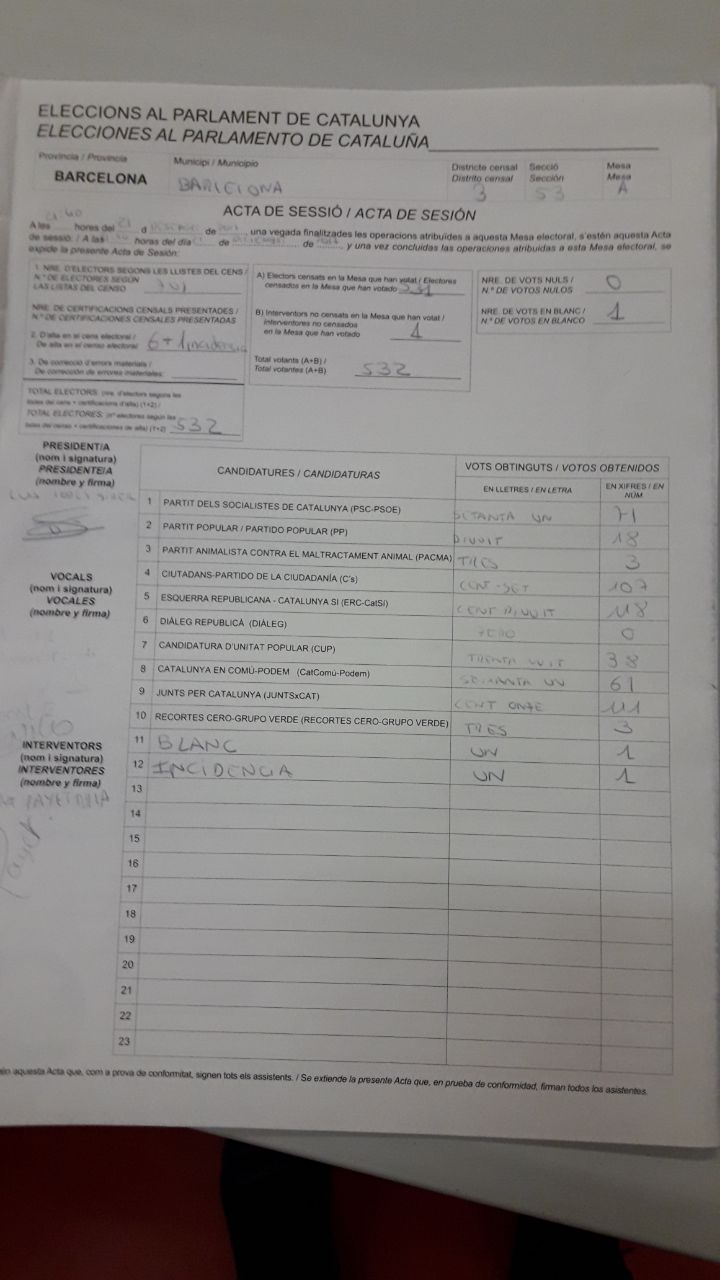 ELECCIONS AL PARLAMENT DE CATALUNYA
ELECCIONES AL PARLAMENTO DE CATALUÑA
Província / Provincia
BARCELONA
Municipi / Municipio
BARCELONA
Districte censal
Distrito censal
3
Secció
Sección
53
Mesa
Mesa
A
ACTA DE SESSIÓ / ACTA DE SESIÓN
A les hores del 21 d de , una vegada finalitzades les operacions atribuïdes a aquesta Mesa electoral, s'estén aquesta Acta
de sessió. / A las horas del día de de , y una vez concluidas las operaciones atribuidas a esta Mesa electoral, se
expide la presente Acta de Sesión:
1. NRE. D'ELECTORS SEGONS LES LLISTES DEL CENS /
N.º DE ELECTORES SEGÚN
LAS LISTAS DEL CENSO
NRE. DE CERTIFICACIONS CENSALS PRESENTADES /
N.º DE CERTIFICACIONES CENSALES PRESENTADAS
2. D'alta en el cens electoral /
De alta en el censo electoral 6 + 1 incidencia
3. De correcció d'errors materials /
De corrección de errores materiales:
TOTAL ELECTORS: (nre. d'electors segons les
llistes del cens + certificacions d'alta) (1+2) /
TOTAL ELECTORES: (nº electores según las
listas del censo + certificaciones de alta) (1+2) 532
A) Electors censats en la Mesa que han votat / Electores
censados en la Mesa que han votado 531
B) Interventors no censats en la Mesa que han votat /
Interventores no censados
en la Mesa que han votado 1
Total votants (A+B) /
Total votantes (A+B) 532
NRE. DE VOTS NULS /
N.º DE VOTOS NULOS 0
NRE. DE VOTS EN BLANC /
N.º DE VOTOS EN BLANCO 1
PRESIDENT/A
(nom i signatura)
PRESIDENTE/A
(nombre y firma)
VOCALS
(nom i signatura)
VOCALES
(nombre y firma)
INTERVENTORS
(nom i signatura)
INTERVENTORES
(nombre y firma)
CANDIDATURES / CANDIDATURAS
VOTS OBTINGUTS / VOTOS OBTENIDOS
EN LLETRES / EN LETRA
EN XIFRES / EN NÚM
1 PARTIT DELS SOCIALISTES DE CATALUNYA (PSC-PSOE) SETANTA UN 71
2 PARTIT POPULAR / PARTIDO POPULAR (PP) DIVUIT 18
3 PARTIT ANIMALISTA CONTRA EL MALTRACTAMENT ANIMAL (PACMA) TRES 3
4 CIUTADANS-PARTIDO DE LA CIUDADANÍA (C's) CENT-SET 107
5 ESQUERRA REPUBLICANA - CATALUNYA SÍ (ERC-CatSí) CENT DIVUIT 118
6 DIÀLEG REPUBLICÀ (DIÀLEG) ZERO 0
7 CANDIDATURA D'UNITAT POPULAR (CUP) TRENTA VUIT 38
8 CATALUNYA EN COMÚ-PODEM (CatComú-Podem) SEIXANTA UN 61
9 JUNTS PER CATALUNYA (JUNTSxCAT) CENT ONZE 111
10 RECORTES CERO-GRUPO VERDE (RECORTES CERO-GRUPO VERDE) TRES 3
11 BLANC UN 1
12 INCIDENCIA UN 1
13
14
15
16
17
18
19
20
21
22
23
aquesta Acta que, com a prova de conformitat, signen tots els assistents. / Se extiende la presente Acta que, en prueba de conformidad, firman todos los asistentes.